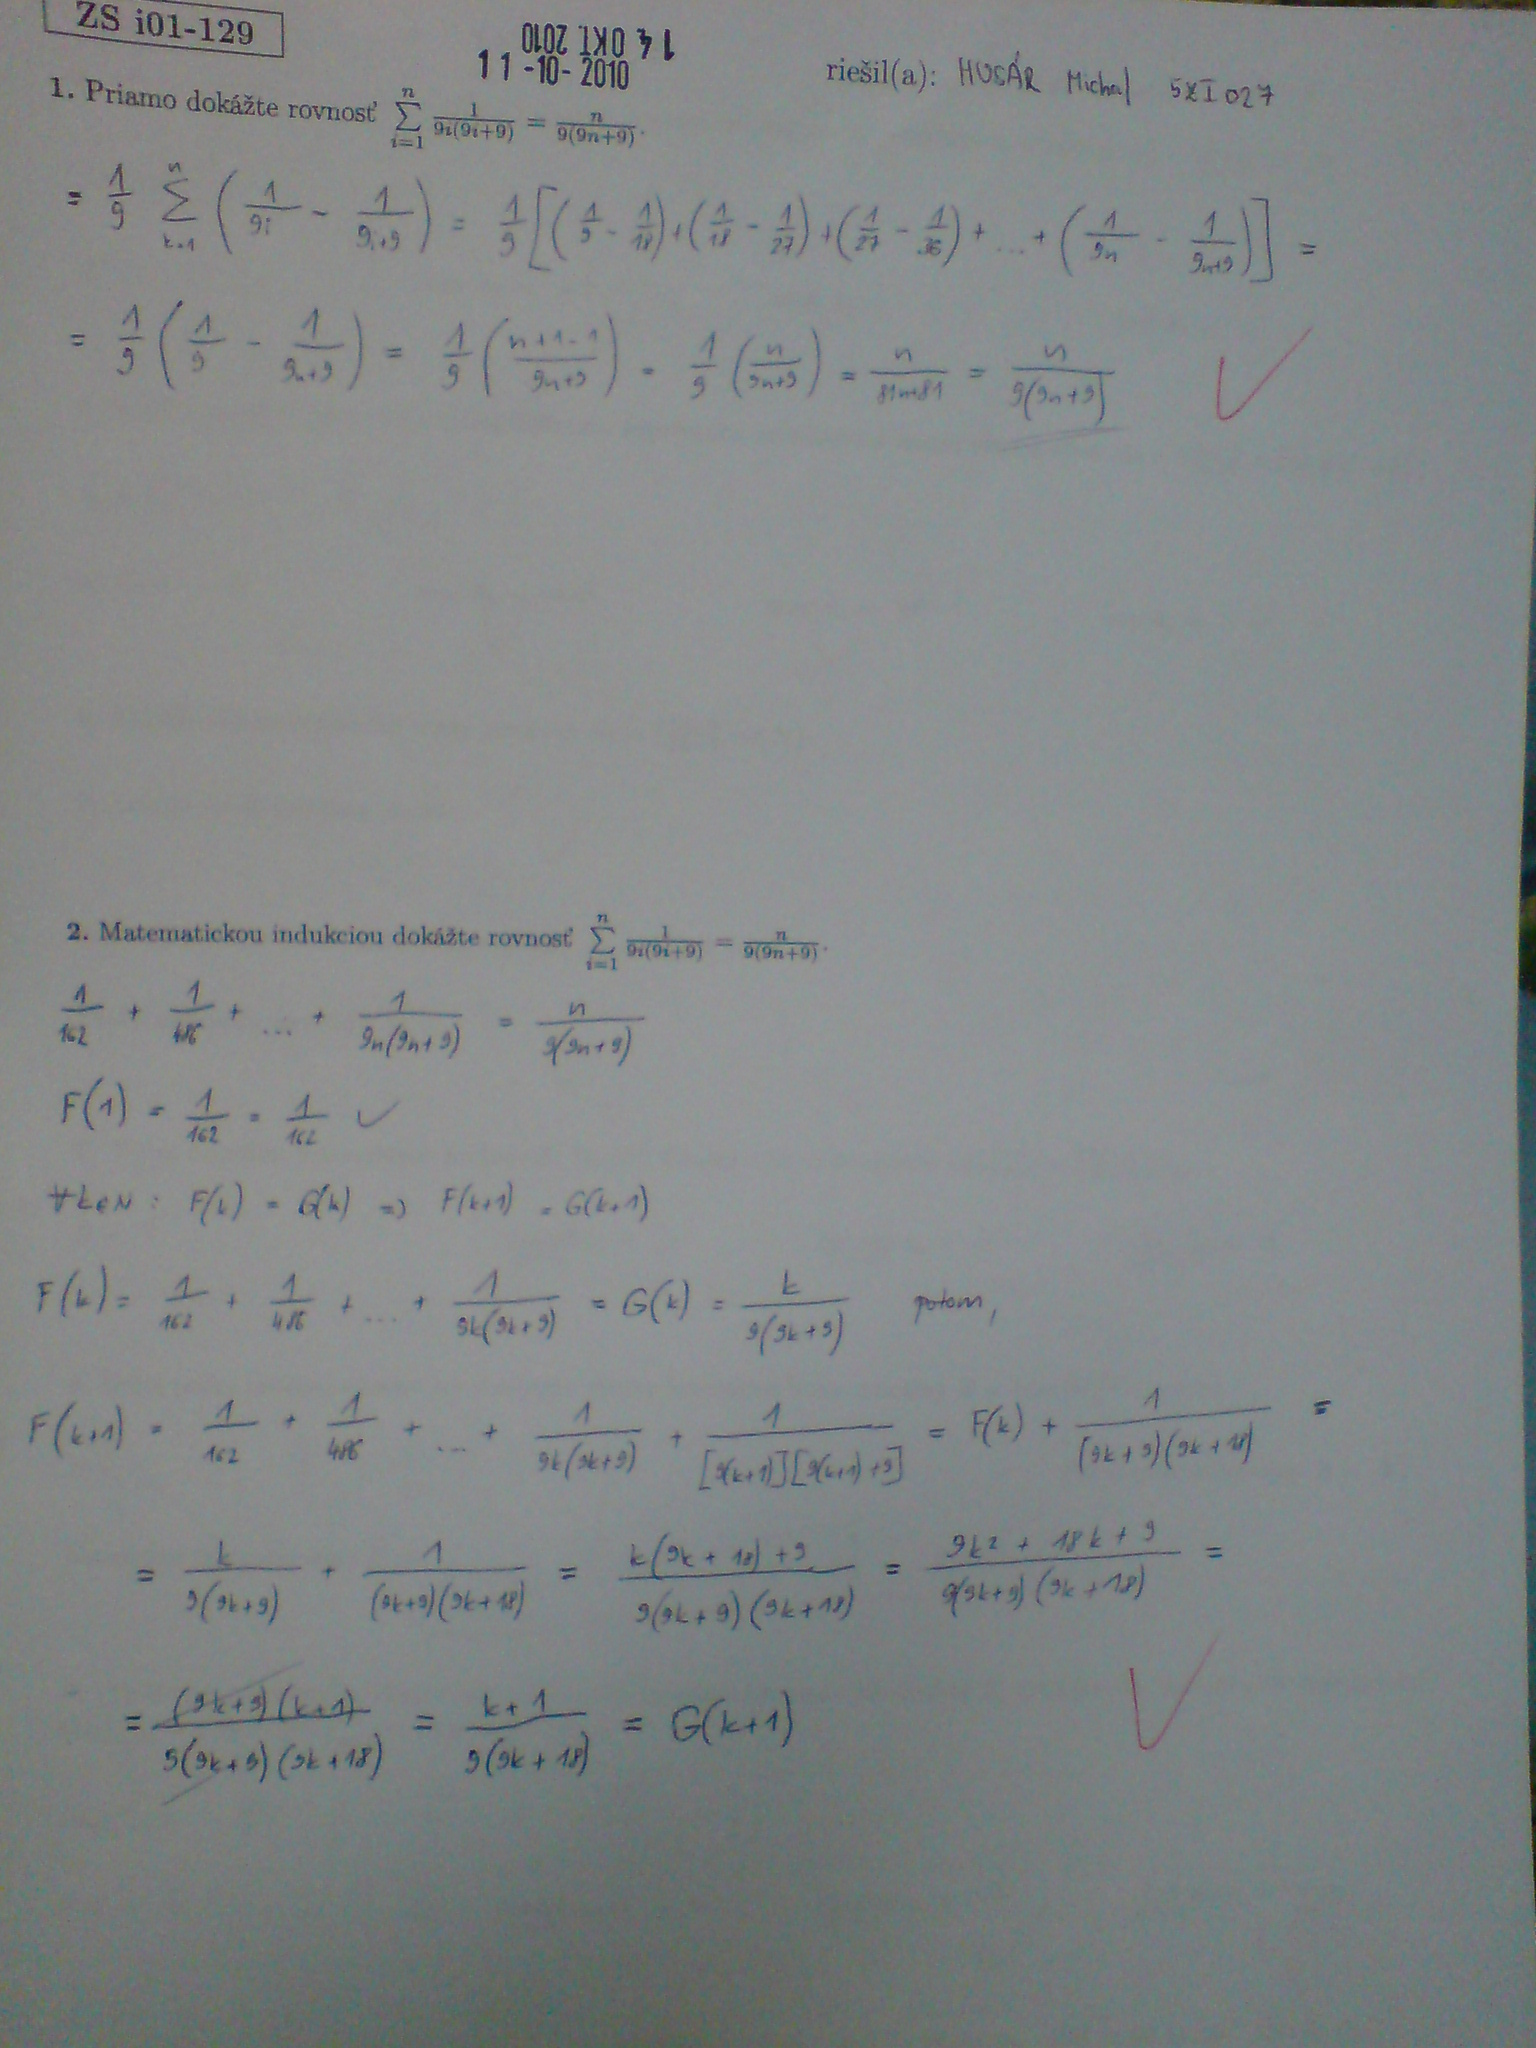 ZS i01-129
14 OKT. 2010
11-10-2010
riešil(a): HUSÁR Michal 5ZI027
1. Priamo dokážte rovnosť \sum_{i=1}^{n} \frac{1}{9i(9i+9)} = \frac{n}{9(9n+9)}.
= \frac{1}{9} \sum_{k=1}^{n} ( \frac{1}{9i} - \frac{1}{9i+9} ) = \frac{1}{9} [ ( \frac{1}{9} - \frac{1}{18} ) + ( \frac{1}{18} - \frac{1}{27} ) + ( \frac{1}{27} - \frac{1}{36} ) + ... + ( \frac{1}{9n} - \frac{1}{9n+9} ) ] =
= \frac{1}{9} ( \frac{1}{9} - \frac{1}{9n+9} ) = \frac{1}{9} ( \frac{n+1-1}{9n+9} ) = \frac{1}{9} ( \frac{n}{9n+9} ) = \frac{n}{81n+81} = \frac{n}{9(9n+9)}
2. Matematickou indukciou dokážte rovnosť \sum_{i=1}^{n} \frac{1}{9i(9i+9)} = \frac{n}{9(9n+9)}.
\frac{1}{162} + \frac{1}{486} + ... + \frac{1}{9n(9n+9)} = \frac{n}{9(9n+9)}
F(1) = \frac{1}{162} = \frac{1}{162} ✓
∀k∈N : F(k) = G(k) => F(k+1) = G(k+1)
F(k) = \frac{1}{162} + \frac{1}{486} + ... + \frac{1}{9k(9k+9)} = G(k) = \frac{k}{9(9k+9)} potom,
F(k+1) = \frac{1}{162} + \frac{1}{486} + ... + \frac{1}{9k(9k+9)} + \frac{1}{[9(k+1)][9(k+1)+9]} = F(k) + \frac{1}{(9k+9)(9k+18)} =
= \frac{k}{9(9k+9)} + \frac{1}{(9k+9)(9k+18)} = \frac{k(9k+18)+9}{9(9k+9)(9k+18)} = \frac{9k²+18k+9}{9(9k+9)(9k+18)} =
= \frac{(9k+9)(k+1)}{9(9k+9)(9k+18)} = \frac{k+1}{9(9k+18)} = G(k+1)